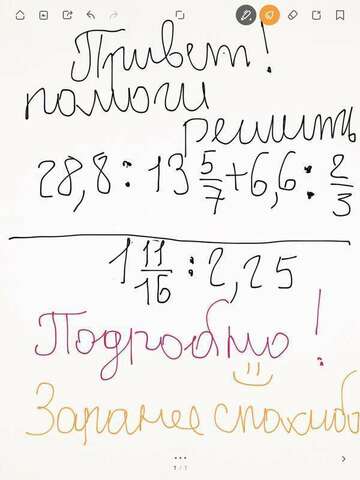 Привет!
помоги
решить
28,8 : 13 5/7 + 6,6 : 2/3
1 11/16 : 2,25
Подробно!
Заранее спасибо
1/1